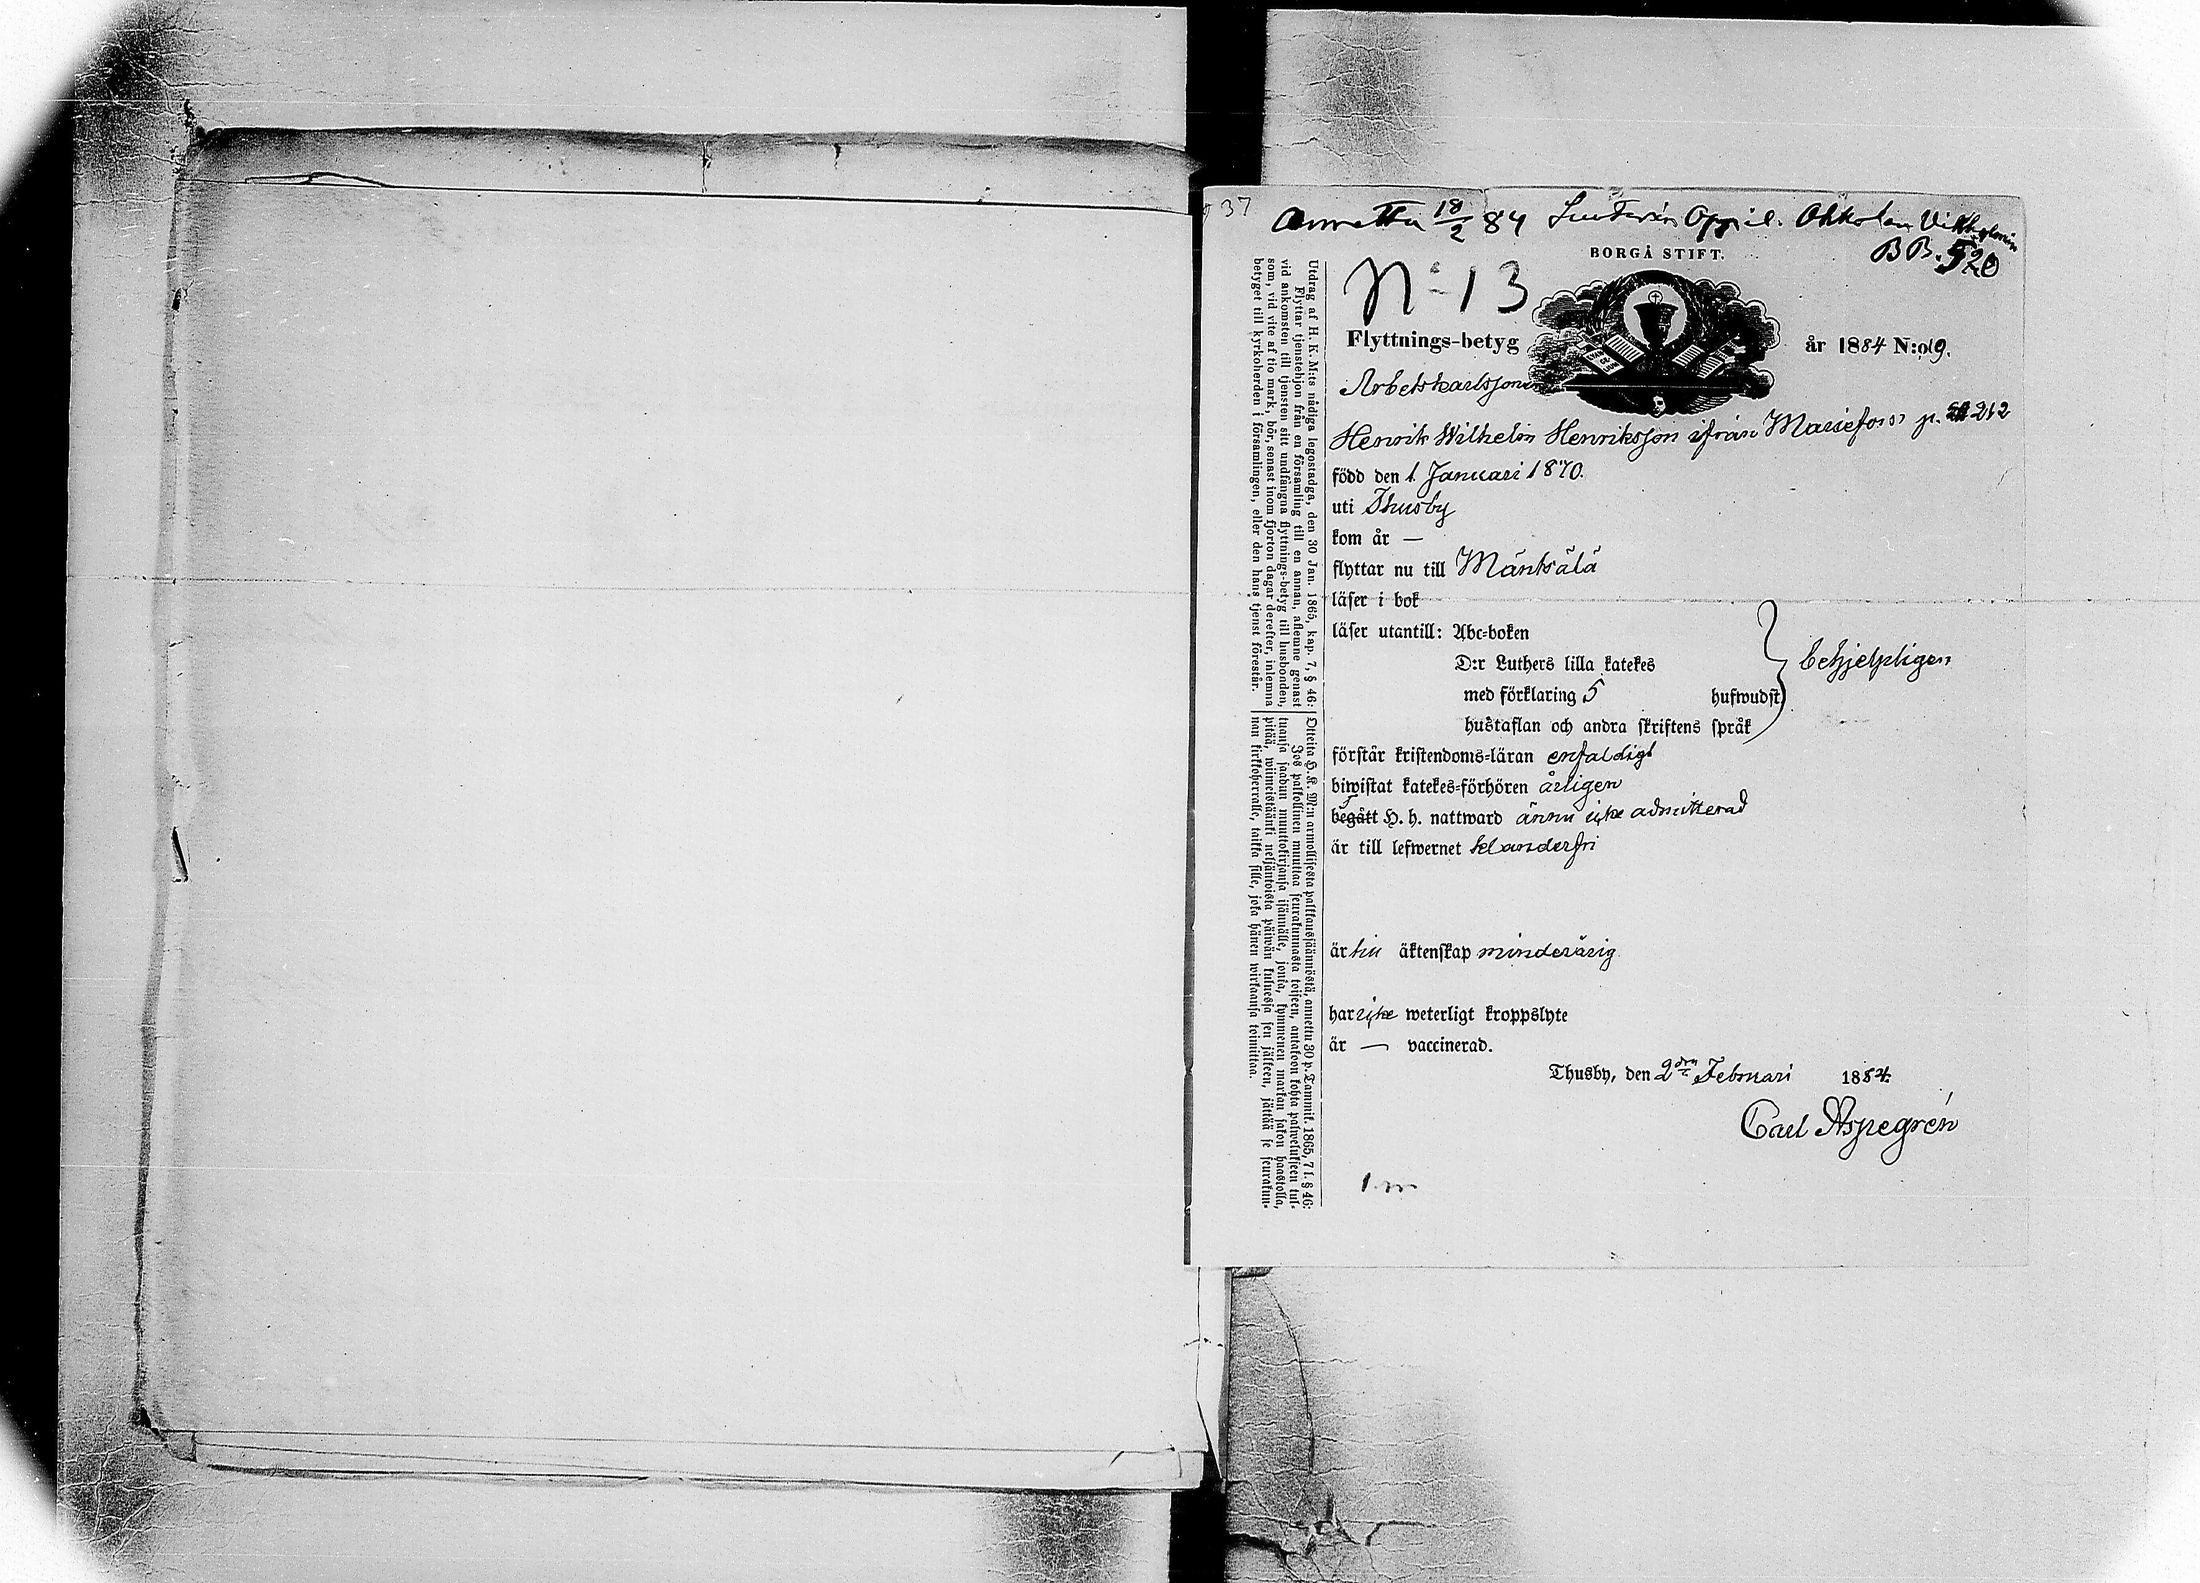 37
Annettu 18/2 84 Oppil. Ohkolan
BB. 520
BORGÅ STIFT.
N:o 13
Flyttnings-betyg år 1884 N:o 19.
Arbetskarlssonen
Henrik Wilhelm Henriksson ifrån Mariefors p. 212
född den 1 Januari 1870.
uti Thusby
kom år —
flyttar nu till Mäntsälä
läser i bok
läser utantill: Abc-boken
D:r Luthers lilla katekes
med förklaring 5 hufwudst.
hustaflan och andra skriftens språk
behjelpligen
förstår kristendoms-läran enfaldigt
biwistat katekes-förhören årligen
begått H. h. nattward ännu icke admitterad
är till lefwernet klanderfri
är till äktenskap minderårig
har icke weterligt kroppslyte
är — vaccinerad.
Thusby, den 2dra Februari 1884.
Carl Aspegrén
Utdrag af H. K. M:ts nådiga legostadga, den 30 Jan. 1865, kap. 7, § 46:
Flyttar tjenstehjon från en församling till en annan, aflemne genast
vid ankomsten till tjensten sitt undfångna flyttnings-betyg till husbonden,
som, vid vite af tio mark, bör, senast inom fjorton dagar derefter, inlemna
betyget till kyrkoherden i församlingen, eller den hans tjenst förestår.
Otteita H. K. M:n armollisesta palkkaussäännöstä, annettu 30 p. Tammik. 1865, 7 l. § 46:
Jos palkollinen muuttaa seurakunnasta toiseen, antakoon kohta palwelukseen tul-
tuansa saadun muuttokirjansa isännälle, jonka, kymmenen markan sakon haastolla,
pitää, wiimeistäänki neljäntoista päiwän kuluessa sen jälkeen, jättää se seurakun-
nan kirkkoherralle, taikka sille, joka hänen wirkaansa toimittaa.